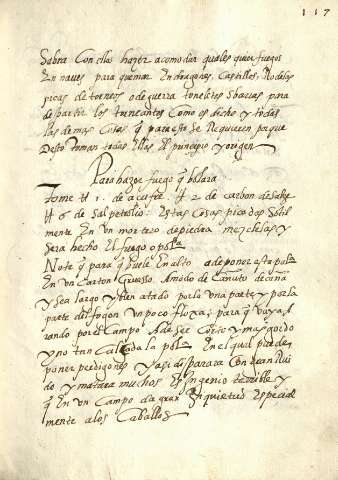 117
Sobra Con ellas hazer acomodar quales quier fuegos
En naves para quemar En dragones, Castillos, Rodelas
picas de torneos o de guerra tonestes Sbarras para
de partir los torneantes Como es dicho y todas
las demas Cosas q para esto Se Requieren porque
Desto toman todas Ellas El principio y origen
Para hazer fuego q bolara
tome tt 1. de acufre tt 2 de carbon de Salze
tt 6 de Sal petrolio: Estas Cosas picadas Sotil
mente En un mortero de piedra mezclalas y
Sera hecho El fuego o pol.a
Note q para q buele En alto a de poner esta pol.a
En un Carton Gruesso. Amodo de Cañuto de caña
y Sea largo y bien atado por la una parte y por la
parte del fogon un poco floxa; para q vaya ti
rando por el Campo A de Ser Corto y mas gordo
y no tan Calcada la pol.a En el qual puede
poner perdigones y asi disparara Con gran Rui
do y matara muchos Es Ingenio terrible y
q En un Campo da gran Inquietud Especial
mente a los Caballos